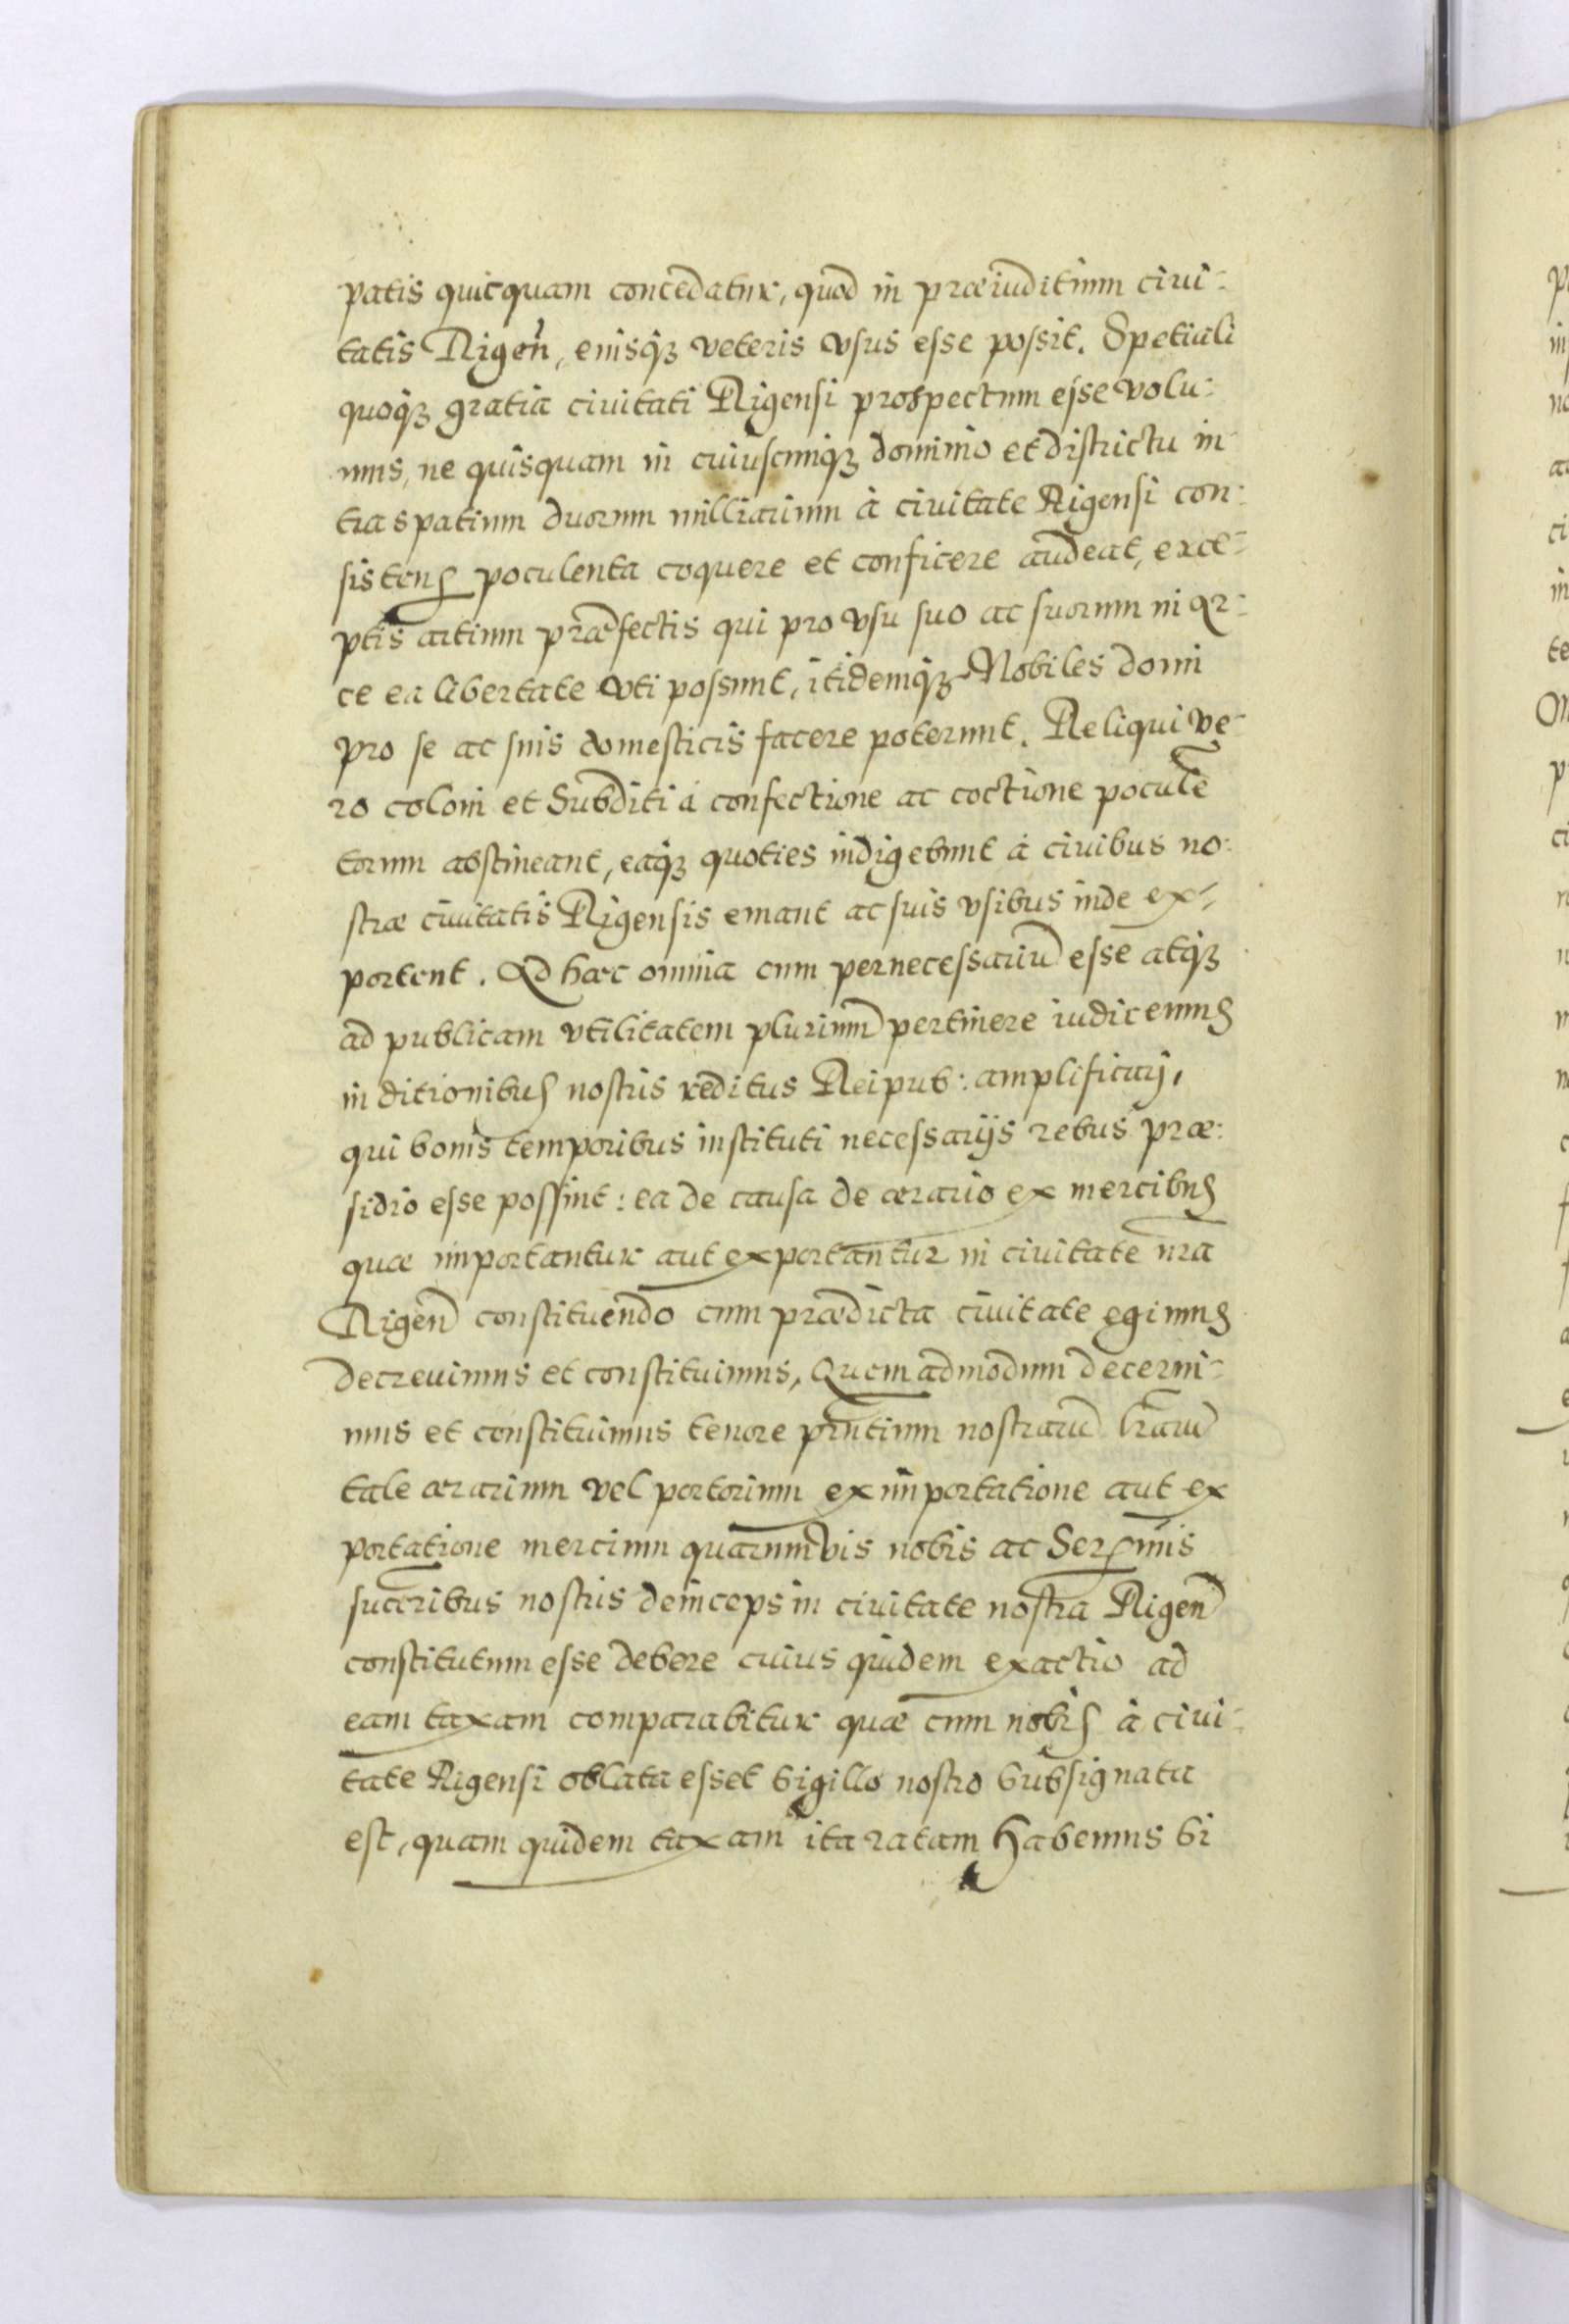 patis quicquam concedatur, quod in præiuditium ciui-
tatis Rigeñ, eiusq3 veteris vsus esse possit. Spetiali
quoq3 gratia ciuitati Rigensi prospectum esse volu-
mus, ne quisquam in cuiuscunq3 dominio et districtu in-
tra spatium duorum milliarium à ciuitate Rigensi con-
sistens poculenta coquere et conficere audeat, exce-
ptis artium præfectis qui pro vsu suo ac suorum in ar-
ce ea libertate vti possunt, itidemq3 Nobiles domi
pro se ac suis domesticis facere poterunt. Reliqui ve-
ro coloni et Subditi à confectione ac coctione poculē
torum abstineant, eaq3 quoties indigebunt à ciuibus no-
stræ ciuitatis Rigensis emant ac suis vsibus inde ex-
portent. Ad hæc omnia cum pernecessariū esse atq3
ad publicam vtilitatem plurimū pertinere iudicemus
in ditionibus nostris reditus Reipub: amplificarj,
qui bonis temporibus instituti necessarijs rebus præ-
sidio esse possint: ea de causa de ærario ex mercibus
quæ importantur aut exportantur in ciuitate nr̃a
Rigeñ constituendo cum prædicta ciuitate egimus
decreuimus et constituimus, Quemadmodum decerni-
mus et constituimus tenore pñtium nostrarū lr̃arū
tale ærarium vel portorium ex importatione aut ex
portatione mercium quarumvis nobis ac Serenmis
succribus nostris deinceps in ciuitate nostra Rigeñ
constitutum esse debere cuius quidem exactio ad
eam taxam comparabitur quæ cum nobis à ciui-
tate Rigensi oblata esset sigillo nostro subsignata
est, quam quidem taxam ita ratam habemus si